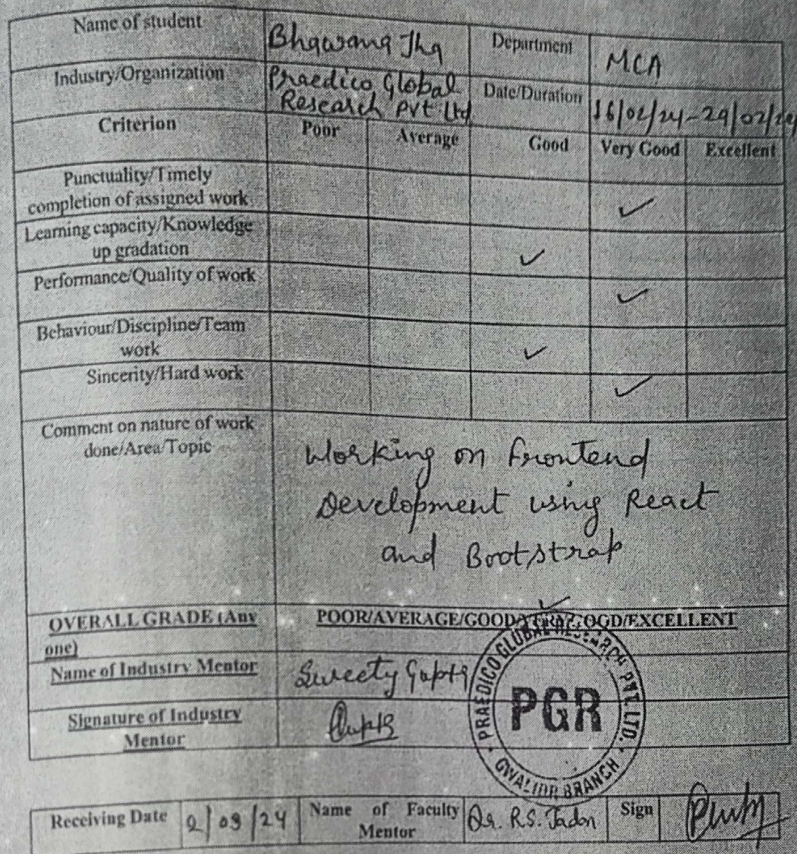 Name of student Bhawana Jha Department MCA
Industry/Organization Praedico Global Research Pvt Ltd Date/Duration 16/02/24-29/02/24
Criterion Poor Average Good Very Good Excellent
Punctuality/Timely
completion of assigned work ✓
Learning capacity/Knowledge
up gradation ✓
Performance/Quality of work ✓
Behaviour/Discipline/Team
work ✓
Sincerity/Hard work ✓
Comment on nature of work
done/Area/Topic
Working on Frontend
Development using React
and Bootstrap
OVERALL GRADE (Any
one)
POOR/AVERAGE/GOOD/VERY GOOD/EXCELLENT
Name of Industry Mentor Sweety Gupta
Signature of Industry
Mentor
PRAEDICO GLOBAL RESEARCH PVT. LTD.
PGR
GWALIOR BRANCH
Receiving Date 2/03/24 Name of Faculty
Mentor Dr. R.S. Jadon Sign